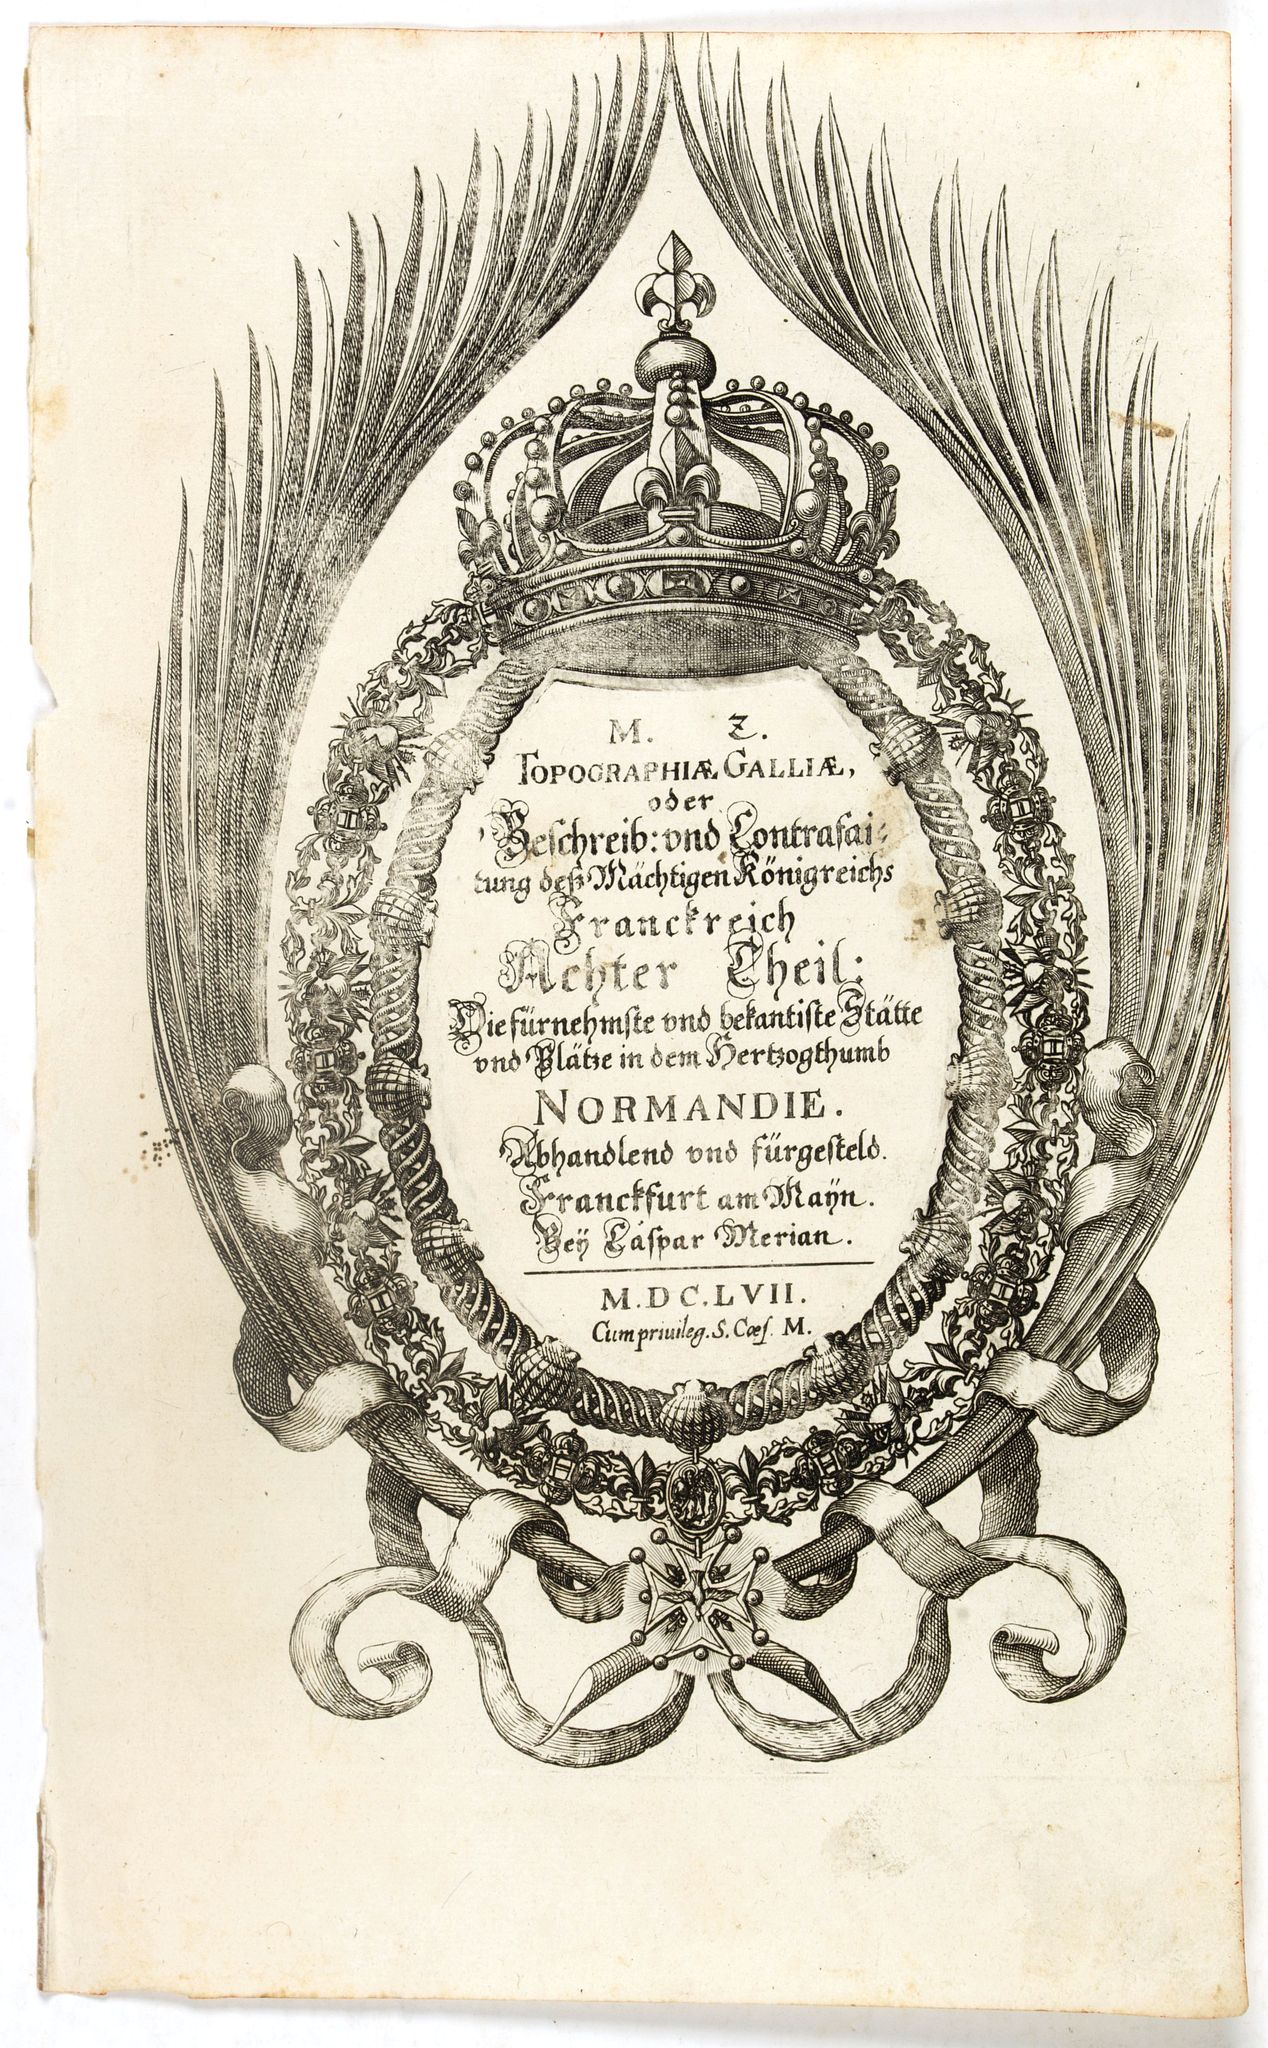 M. Z.
TOPOGRAPHIÆ GALLIÆ,
oder
Beschreib: vnd Contrafai:
tung deß Mächtigen Königreichs
Franckreich
Achter Theil:
Die fürnehmste vnd bekantiste Stätte
vnd Plätze in dem Hertzogthumb
NORMANDIE.
Abhandlend vnd fürgesteld.
Franckfurt am Maÿn.
Beÿ Caspar Merian.
M.DC.LVII.
Cum priuileg. S. Cæs. M.